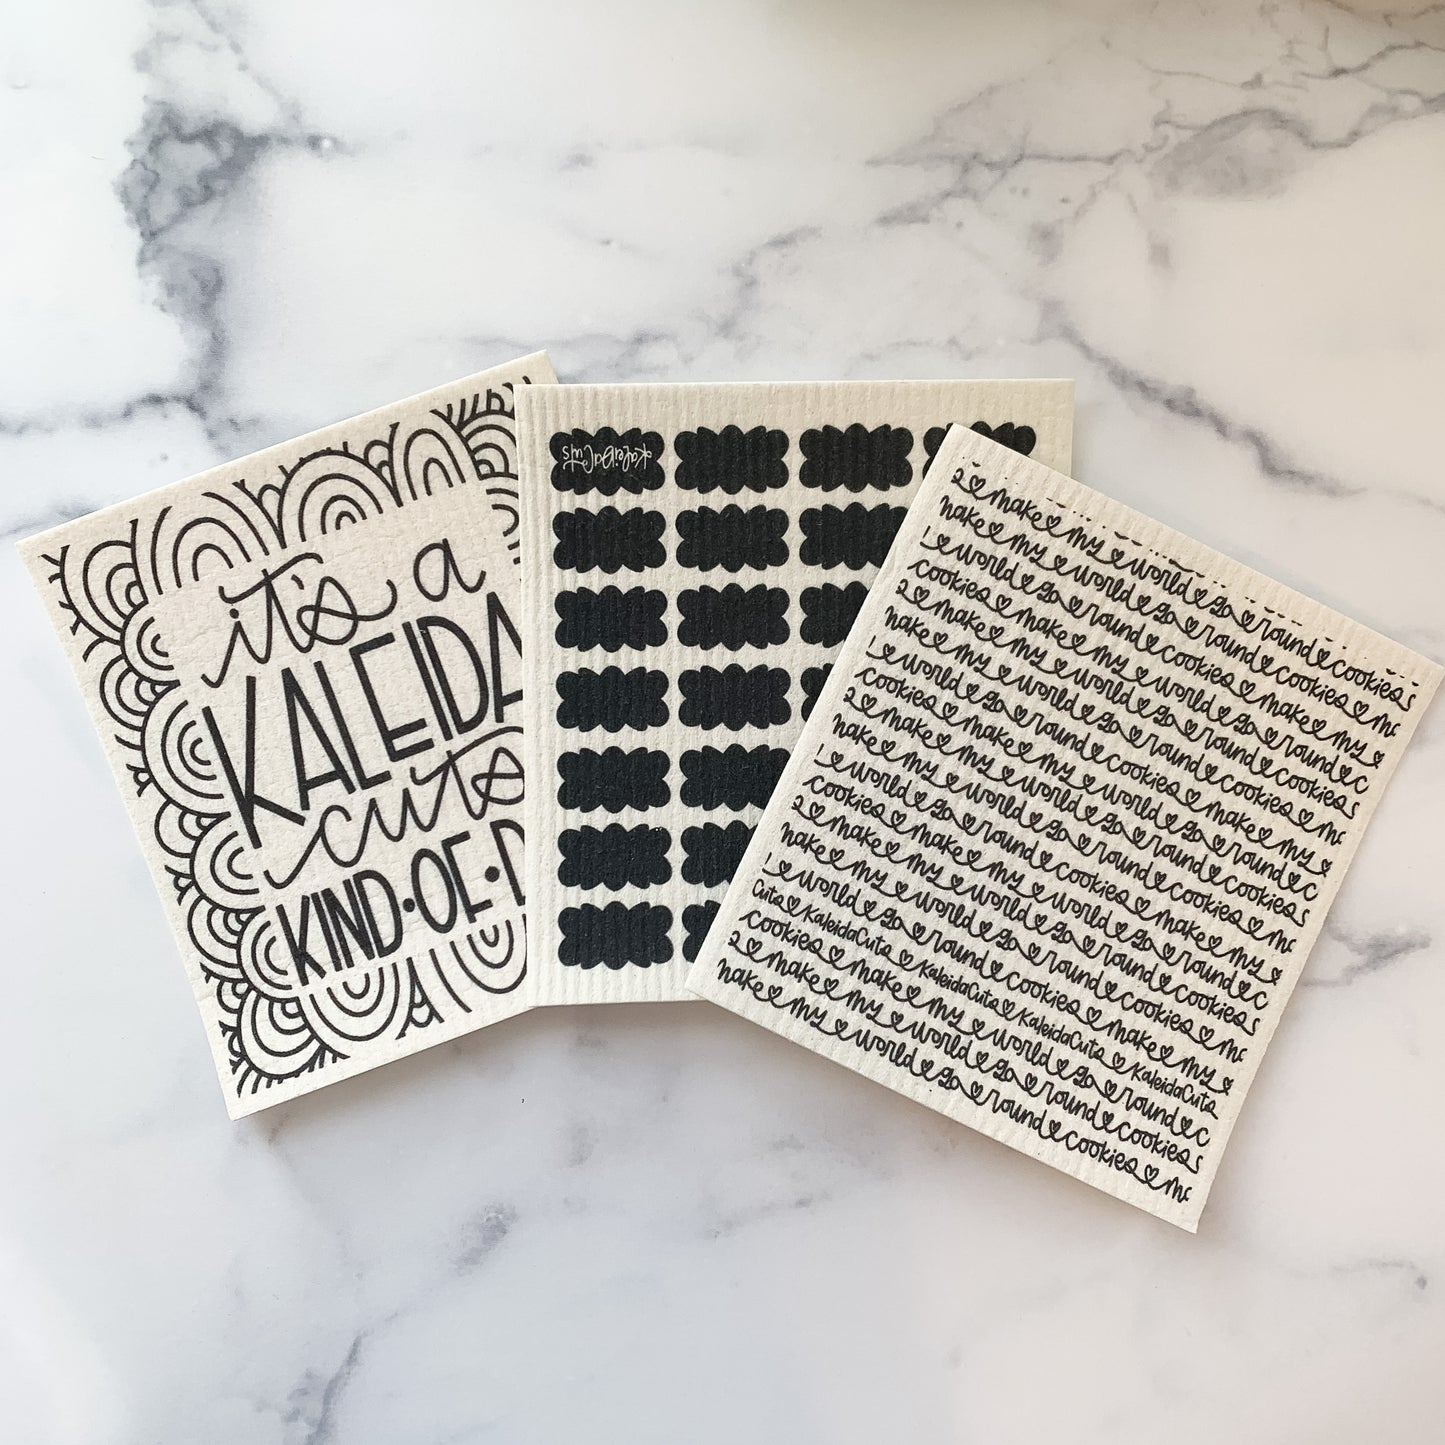 it's a
KALEIDA
cuts
KIND•OF•D
KaleidaCuts
make ♥ my ♥ world ♥ go ♥ round ♥ cookies
make ♥ my ♥ world ♥ go ♥ round ♥ cookies
world ♥ go ♥ round ♥ cookies ♥ make ♥ my ♥
cookies ♥ make ♥ my ♥ world ♥ go ♥ round ♥ c
make ♥ my ♥ world ♥ go ♥ round ♥ cookies
make ♥ my ♥ world ♥ go ♥ round ♥ cookies
world ♥ go ♥ round ♥ cookies ♥ make ♥ my ♥
cookies ♥ make ♥ my ♥ world ♥ go ♥ round ♥ c
make ♥ my ♥ world ♥ go ♥ round ♥ cookies
make ♥ my ♥ world ♥ go ♥ round ♥ cookies
world ♥ go ♥ round ♥ cookies ♥ make ♥ my ♥
cookies ♥ make ♥ my ♥ world ♥ go ♥ round ♥ c
make ♥ my ♥ world ♥ go ♥ round ♥ cookies
make ♥ my ♥ world ♥ go ♥ round ♥ cookies
world ♥ go ♥ round ♥ cookies ♥ make ♥ my ♥
Cuts ♥ KaleidaCuts ♥ KaleidaCuts ♥ KaleidaCuts ♥ KaleidaCuts
cookies ♥ make ♥ my ♥ world ♥ go ♥ round ♥ c
make ♥ my ♥ world ♥ go ♥ round ♥ cookies
make ♥ my ♥ world ♥ go ♥ round ♥ cookies